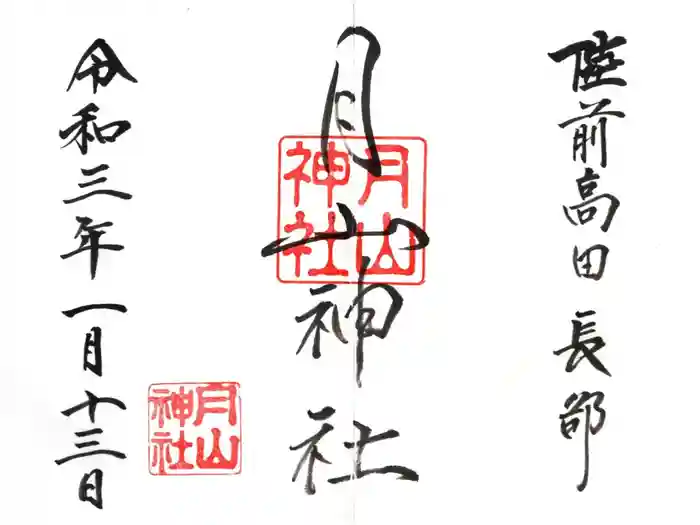 陸前高田 長部
月山神社
月山神社
令和三年一月十三日
月山神社